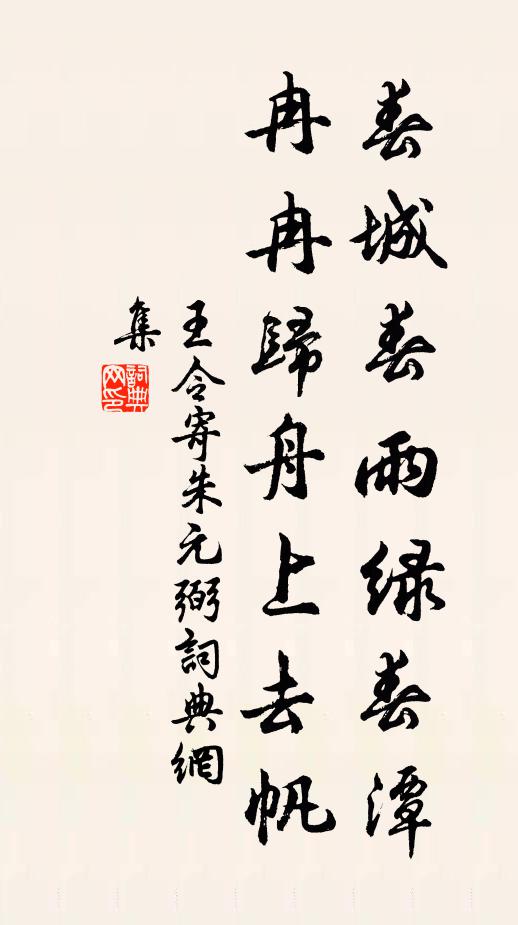 春城春雨緑春潭
冉冉歸舟上去帆
王令寄朱元弼詞典網
集
詞典
网印